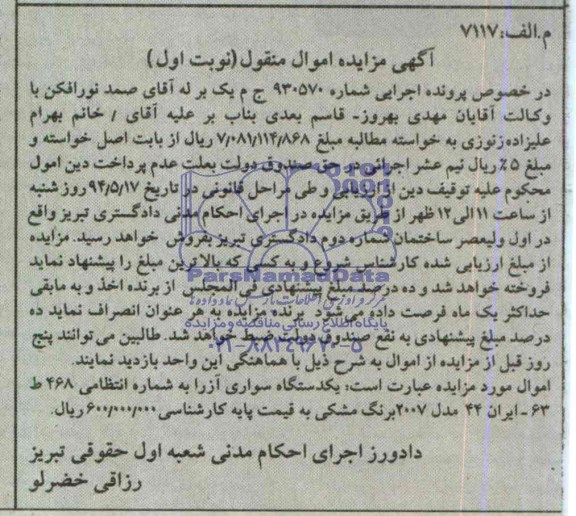 م.الف:۷۱۱۷
آگهی مزایده اموال منقول(نوبت اول)
در خصوص پرونده اجرایی شماره ۹۳۰۵۷۰ ج م یک بر له آقای صمد نورافکن با
وکالت آقایان مهدی بهروز- قاسم بعدی بناب بر علیه آقای / خانم بهرام
علیزاده زنوزی به خواسته مطالبه مبلغ ۷/۰۸۱/۱۱۴/۸۶۸ ریال از بابت اصل خواسته و
مبلغ ۵٪ ریال نیم عشر اجرائی در حق صندوق دولت بعلت عدم پرداخت دین امول
محکوم علیه توقیف دین ارزیابی و طی مراحل قانونی در تاریخ ۹۴/۵/۱۷ روز شنبه
از ساعت ۱۱ الی ۱۲ ظهر از طریق مزایده در اجرای احکام مدنی دادگستری تبریز واقع
در اول ولیعصر ساختمان شماره دوم دادگستری تبریز بفروش خواهد رسید. مزایده
از مبلغ ارزیابی شده کارشناس شروع و به کسی که بالاترین مبلغ را پیشنهاد نماید
فروخته خواهد شد و ده درصد مبلغ پیشنهادی فی المجلس از برنده اخذ و به مابقی
حداکثر یک ماه فرصت داده می‌شود برنده مزایده به هر عنوان انصراف نماید ده
درصد مبلغ پیشنهادی به نفع صندوق دولت ضبط خواهد شد. طالبین می‌توانند پنج
روز قبل از مزایده از اموال به شرح ذیل با هماهنگی این واحد بازدید نمایند.
اموال مورد مزایده عبارت است: یکدستگاه سواری آزرا به شماره انتظامی ۴۶۸ ط
۶۳-ایران ۴۴ مدل ۲۰۰۷ برنگ مشکی به قیمت پایه کارشناسی ۶۰۰/۰۰۰/۰۰۰ ریال.
دادورز اجرای احکام مدنی شعبه اول حقوقی تبریز
رزاقی خضرلو
ParsNamadData
پایگاه اطلاع رسانی مناقصه و مزایده